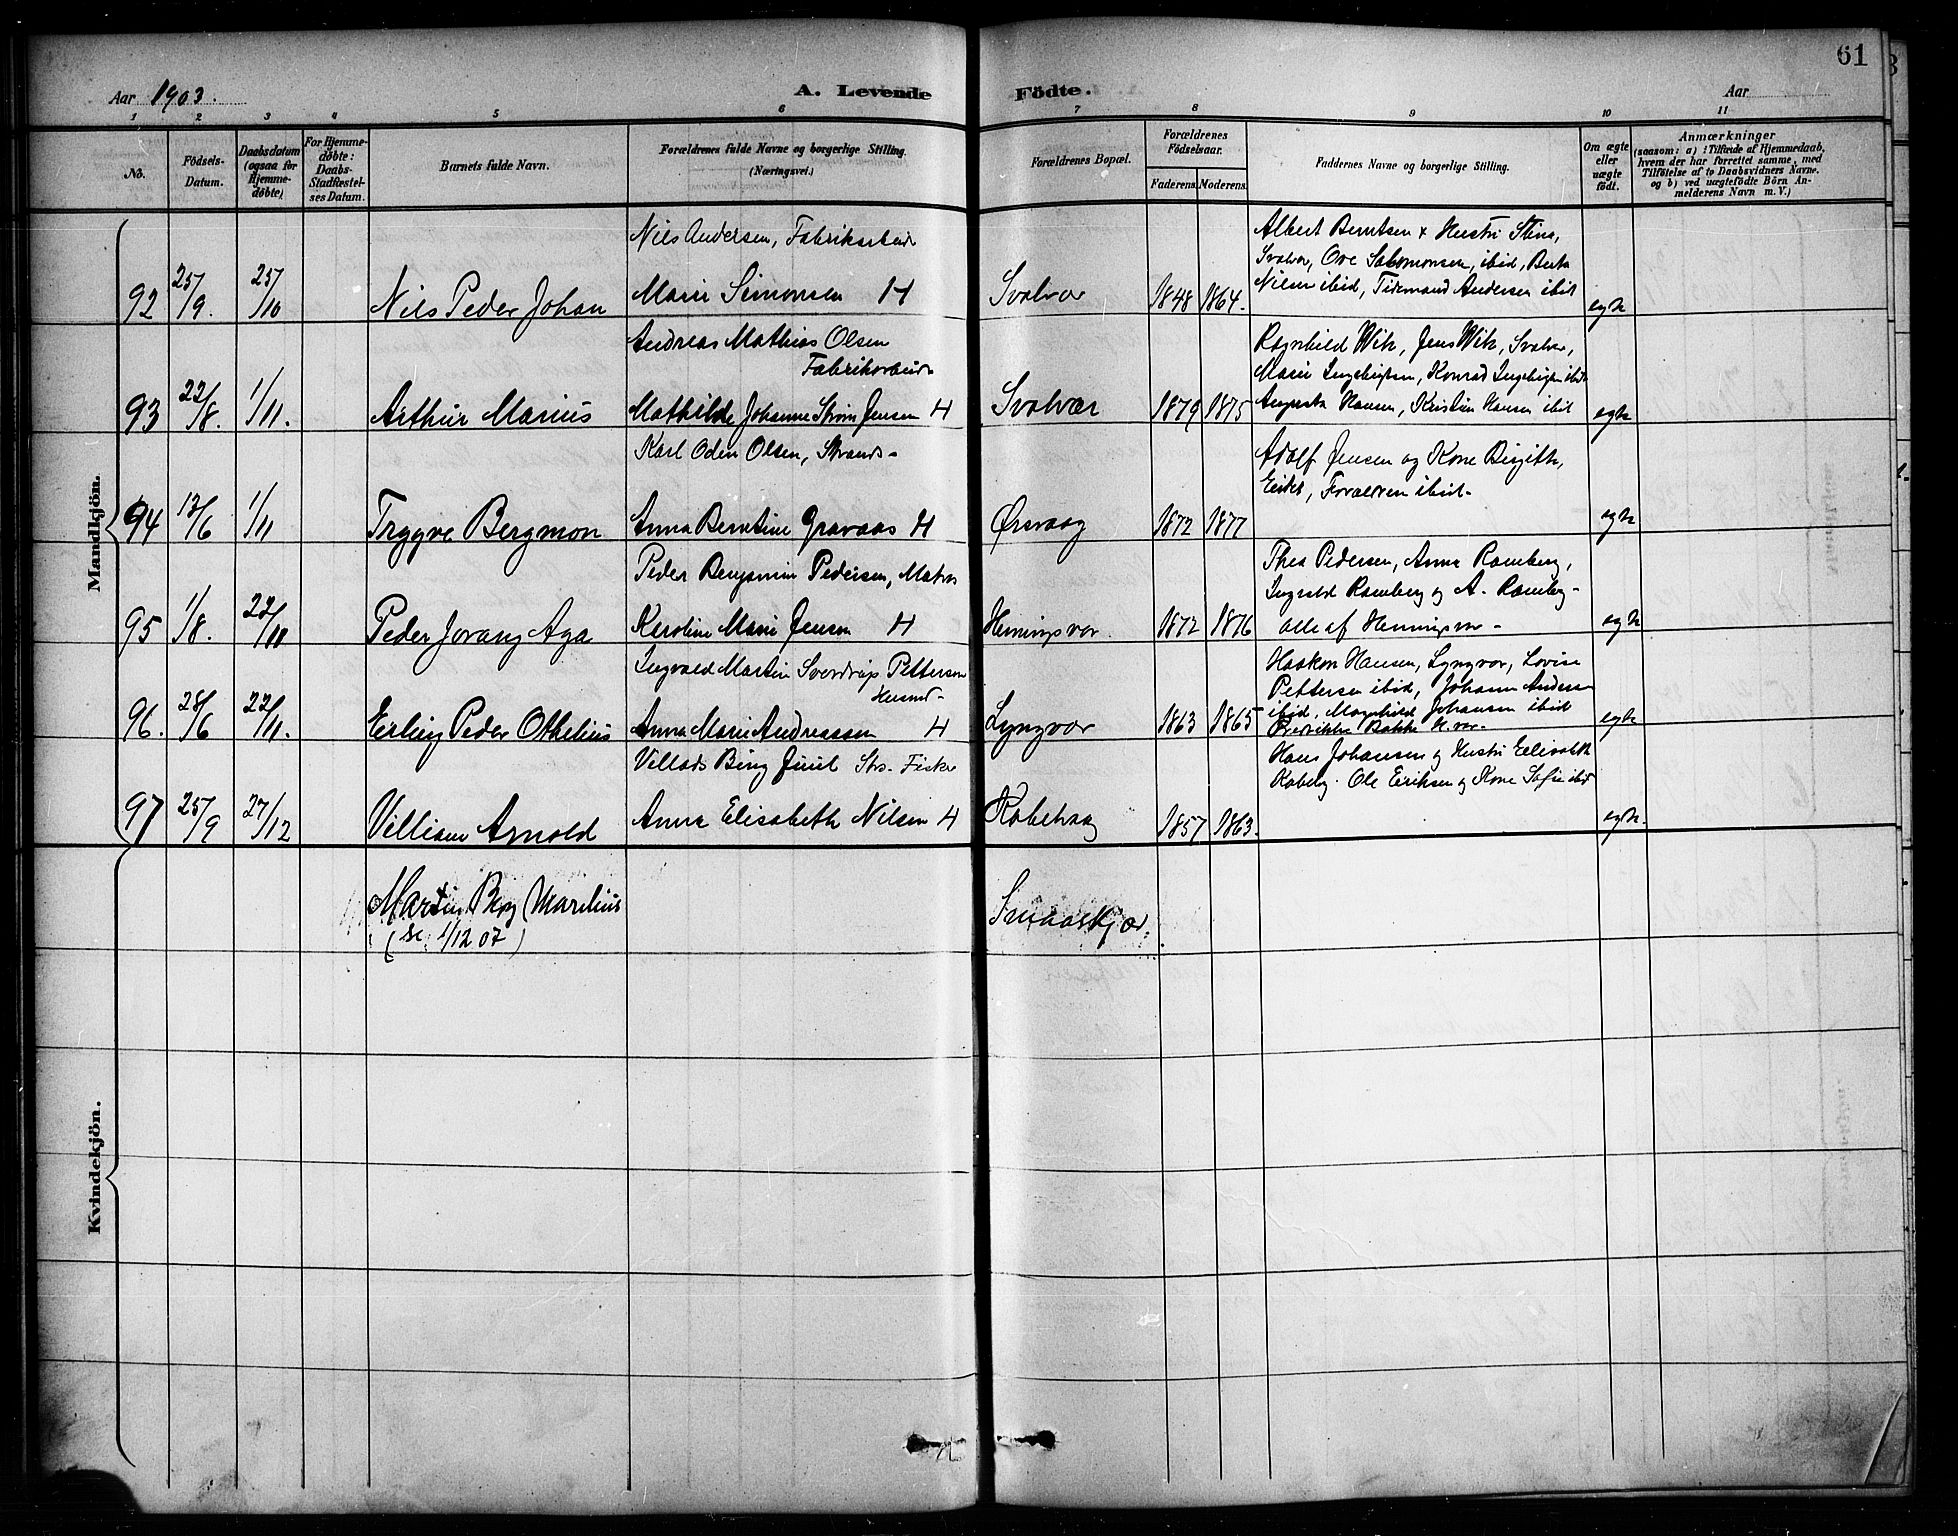 61
Aar 1903.
A. Levende
Födte.
Aar
1 2 3 4 5 6 7 8 9 10 11
No.
Födsels-
Datum.
Daabsdatum
(ogsaa for
Hjemme-
döbte)
For Hjemme-
döbte:
Daabs-
Stadfæstel-
ses Datum.
Barnets fulde Navn.
Forældrenes fulde Navne og borgerlige Stilling.
(Næringsvei.)
Forældrenes Bopæl.
Forældrenes
Födselsaar.
Faderens. Moderens.
Faddernes Navne og borgerlige Stilling.
Om ægte
eller
uægte
född.
Anmærkninger
(saasom: a) i Tilfælde af Hjemmedaab,
hvem der har forrettet samme, med
Tilföielse af to Daabsvidners Navne.
og b) ved uægtefödte Börn An-
melderens Navn m. V.)
Mandkjön.
Nils Andersen, Fabriksarbeid
92 25/9. 25/10 Nils Peder Johan Marie Simonsen H Svolvær 1848 1864. egte
Albert Berntsen & Hustri Stina,
Svolvær, Ove Salomonsen, ibid, Berta
Nilsen ibid, Tidemand Andersen ibid
Andreas Mathias Olsen
Fabrikarbeid
93 22/8. 1/11. Arthur Marius Mathilde Johanne Strøm Jensen H Svolvær 1879 1875 egte
Ragnhild Wik, Jens Wik, Svolvær,
Marie Ingebrigtsen, Konrad Ingebrigtsen ibid
Augusta Hansen, Kristian Hansen ibid
Karl Odin Olsen, Strands-
94 12/6 1/11 Trygve Bergmon Anna Berntine Gravaas H Ørsvaag 1872 1877 egte
Adolf Jensen og Kone Birgithe,
Forældren ibid-
Peder Benjamin Pedersen, Matros
95 1/8. 22/11 Peder Jorang Aga Karoline Marie Jensen H Henningsvær. 1872 1876 egte
Thea Pedersen, Anna Ramberg,
Ingvald Ramberg og A. Ramberg-
alle af Henningsvær-
Ingvald Martin Sverdrup Pettersen
Husmd-
96. 28/6 22/11. Erling Peder Othelius Anna Marie Andreassen H Lyngvær 1863 1865 egte
Haakon Hansen, Lyngvær, Lovise
Pettersen ibid, Johann Andersen
ibid, Magnhild Johansen ibid
Fredrikke Bakke H.vær-
Villads Bing Juul Sts. Fisker
97 25/9 27/12 Villiam Arnold Anna Elisabeth Nilsen H Kabelvaag 1857 1863. egte.
Hans Johansen og Hustri Elisabeth
Kabelvg. Ole Eriksen og Kone Sofie ibid
Kvindekjön.
Martin Berg Marelius Smaaskjær.
(se 1/12 07)